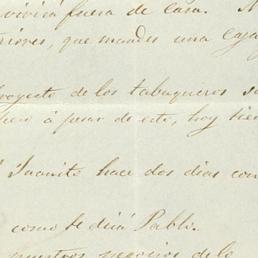 vivirá fuera de casa.
que mandes una caja
royecto de los tabaqueros
pero á pesar de esto, hoy
Juanito hace dos dias con
como te dirá Pablo.
nuestros negocios de lo